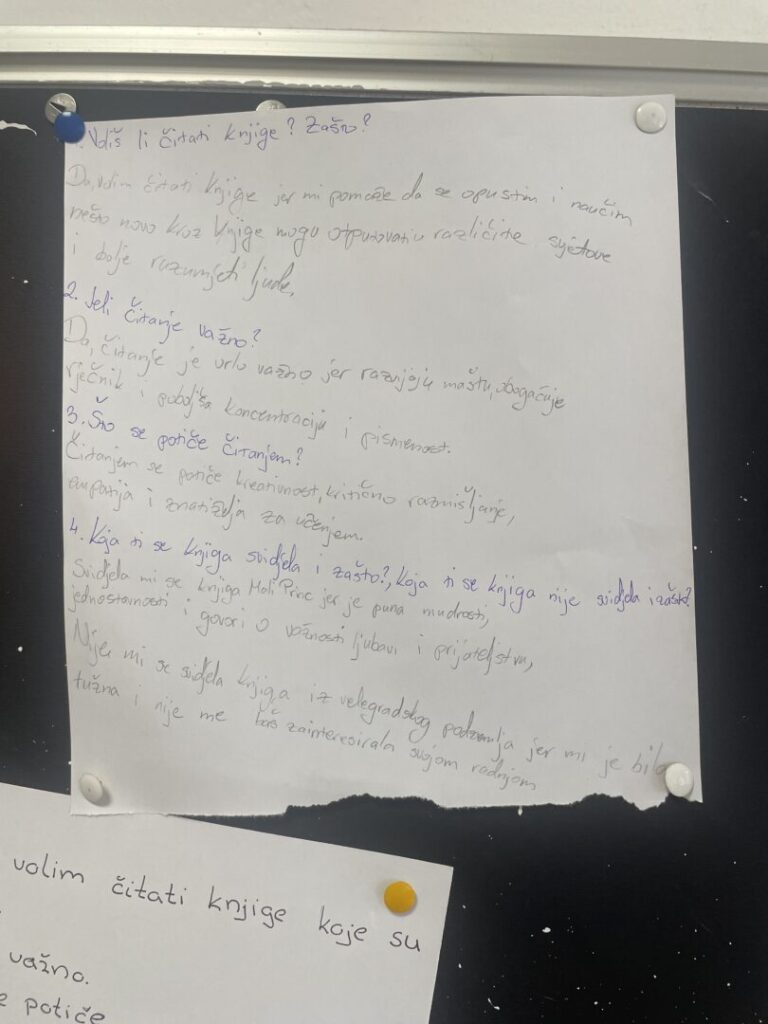 1. Voliš li čitati knjige? Zašto?
Da, volim čitati knjige jer mi pomaže da se opustim i naučim
nešto novo kroz knjige mogu otputovati u različite svjetove
i bolje razumjeti ljude,
2. Jeli čitanje važno?
Da, čitanje je vrlo važno jer razvijaju maštu, obogaćuje
rječnik i poboljša koncentraciju i pismenost.
3. Što se potiče čitanjem?
Čitanjem se potiče kreativnost, kritično razmišljanje,
empatija i znatiželja za učenjem.
4. Koja ti se knjiga svidjela i zašto?, koja ti se knjiga nije svidjela i zašto?
Svidjela mi se knjiga Mali Princ jer je puna mudrosti,
jednostavnosti i govori o važnosti ljubavi i prijateljstvu,
Nije mi se svidjela knjiga iz velegradskog podzemlja jer mi je bila
tužna i nije me baš zainteresirala svojom radnjom
volim čitati knjige koje su
važno.
potiče